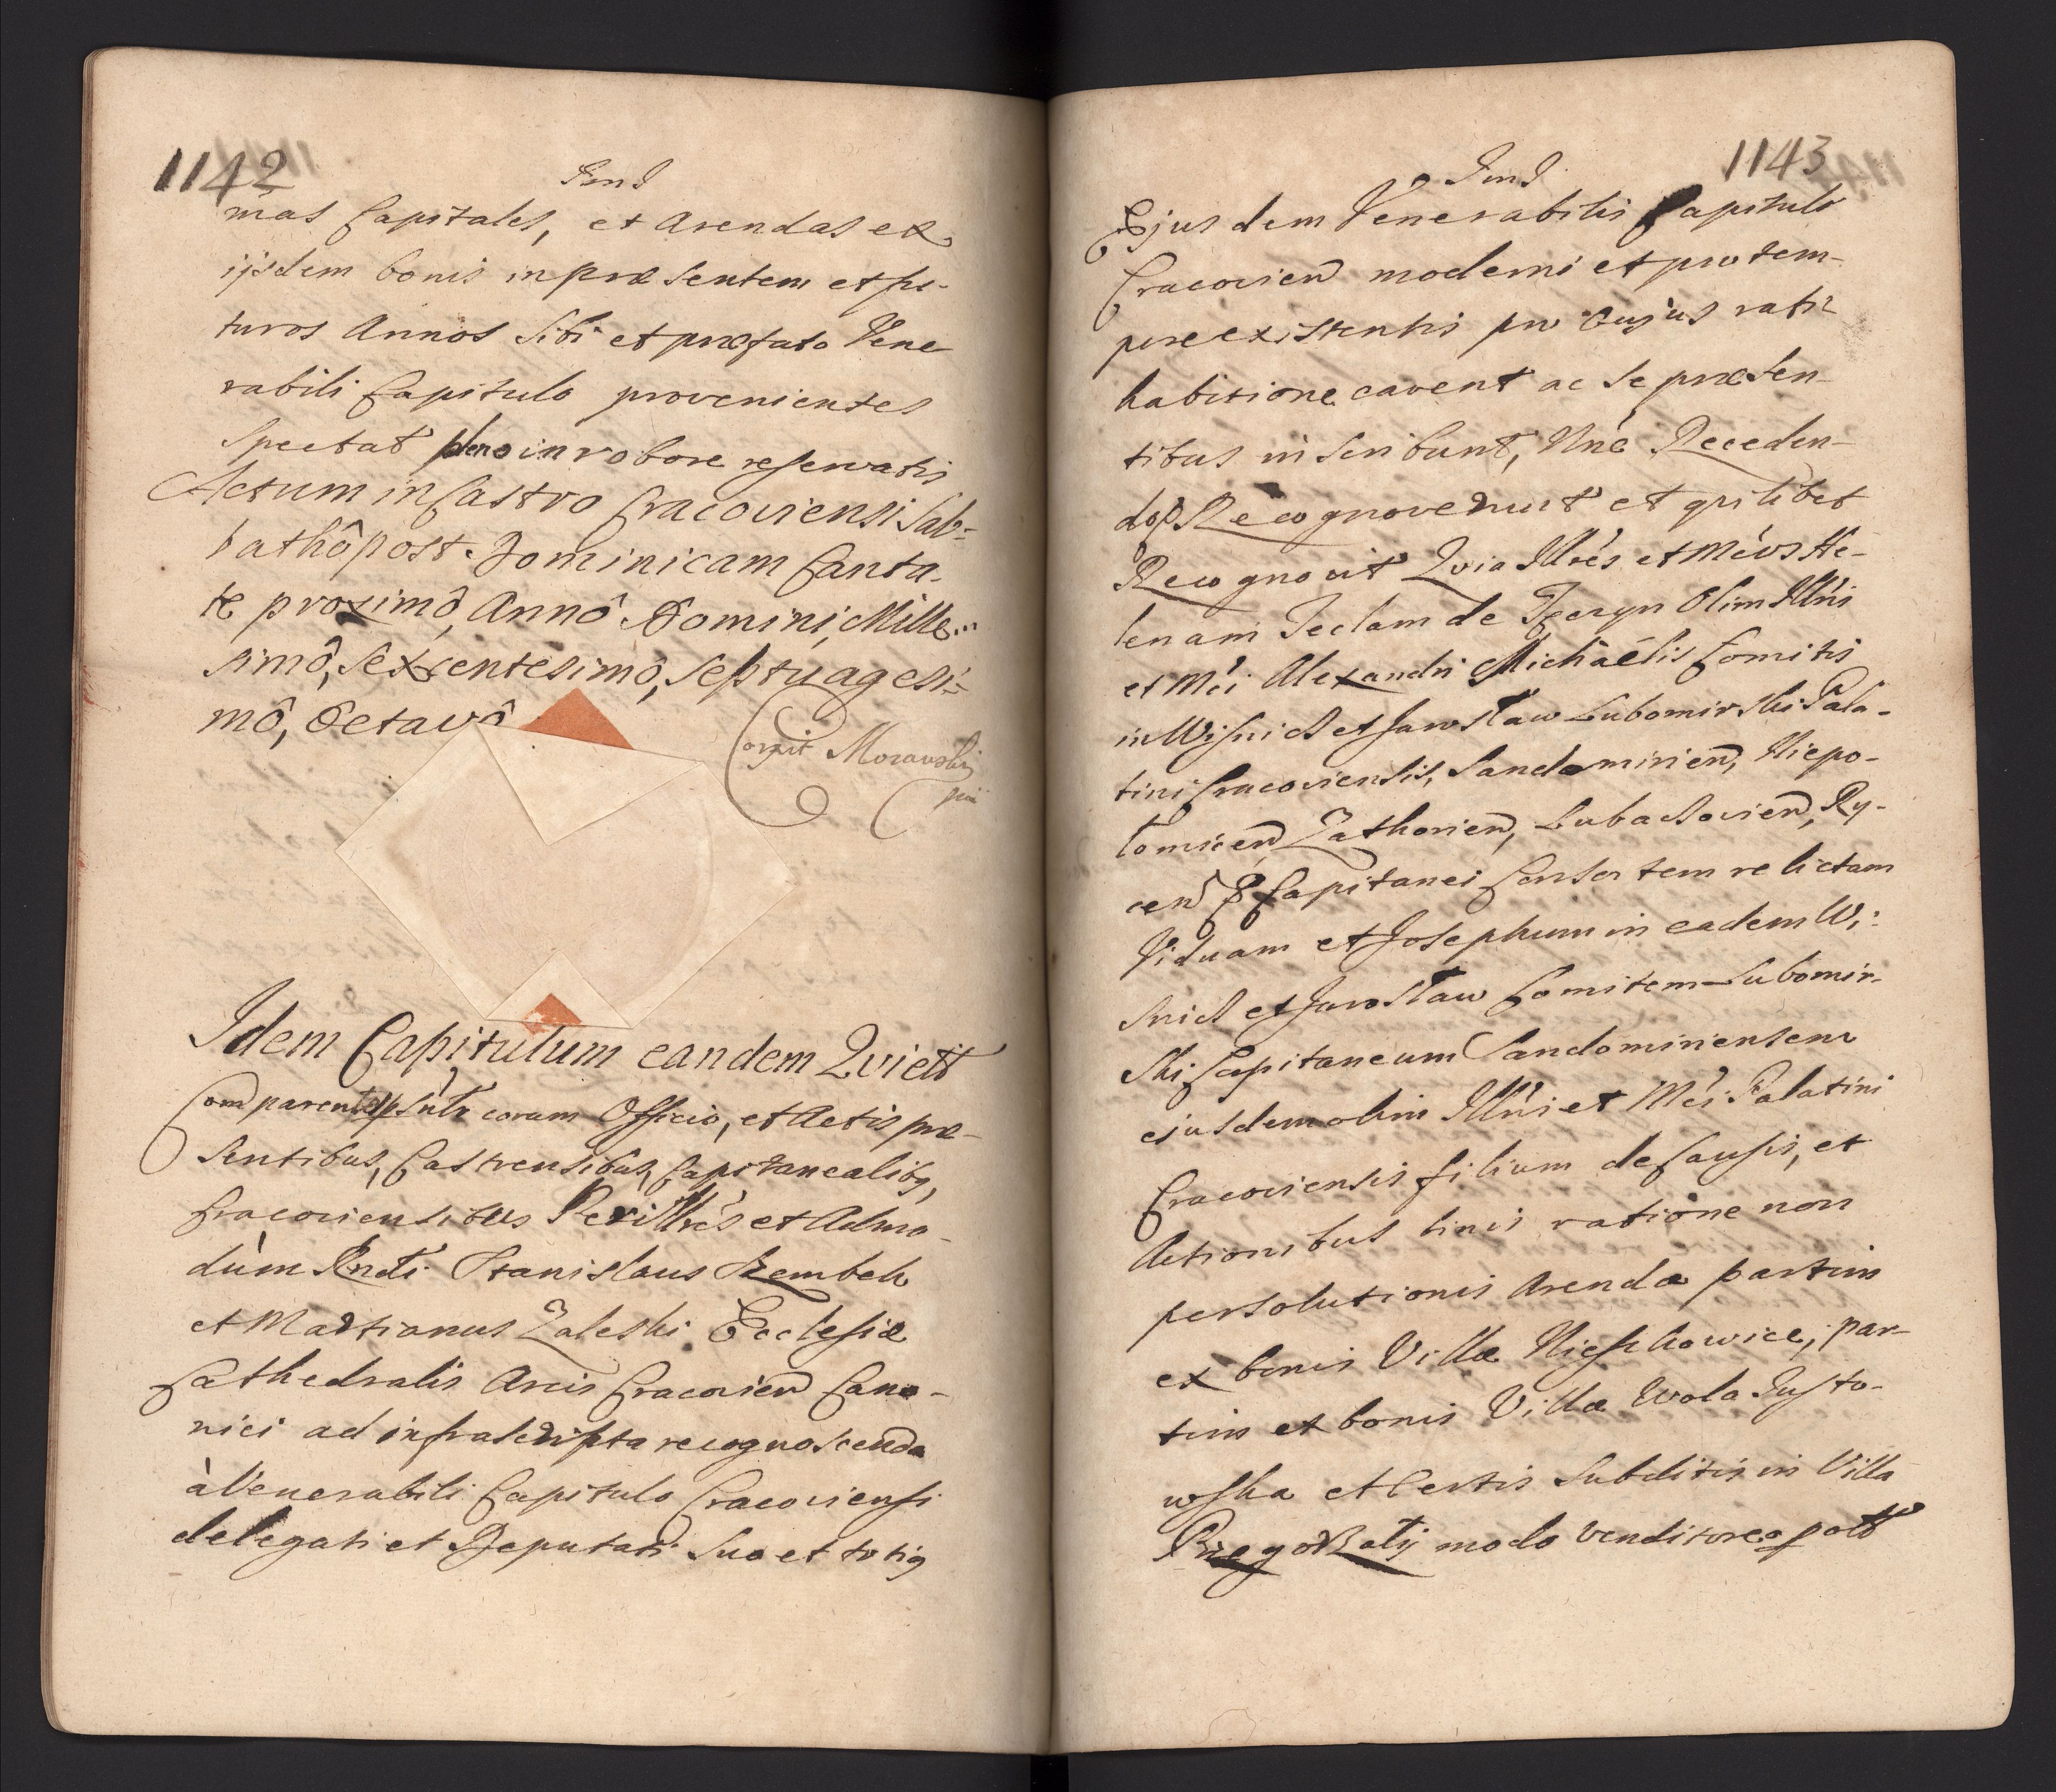 1142
mas Capitales, et Arendas ex
ijsdem bonis in præsentem et fu-
turos Annos Sibi et præfato Vene
rabili Capitulo provenientes
Spectat pleno in robore reservatis
Actum in Castro Cracoviensi Sab-
bathô post Dominicam Canta-
te proximô, Annô Domini, Mille-
simô, Sexcentesimô, Septuagesi-
mô, Octavô
Morawski
Idem Capitulum eandem Quiett
Comparentes coram Officio, et Actis præ-
sentibus, Castrensibus, Capitanealibq,
Cracoviensibus Perillrés et Admo-
dùm Rndi Stanislaus Szembek
et Martianus Zaleski Ecclesiæ
Cathedralis Arcis Cracovien Cano-
nici ad infrascripta recognoscenda
à Venerabili Capitulo Cracoviensi
delegati et Deputati Suo et totiq
1143
Ejusdem Venerabilis Capituli
Cracovien moderni et pro tem-
pore existentis pro cujus rati
habitione cavent ac se præsen-
tibus inscribunt, Receden-
do Recognoverunt et quilibet
Recognovit Quia Illrés et Mcos He-
lenam Teclam de Olim Illris
et Mci Alexandri Michaëlis Comitis
in Wisnicz et Jaroslaw Lubomirski Pala-
tini Cracoviensis, Sandomirien, Niepo-
lomicen Zathorien, Lubaczovien, Ry-
cen Capitanei Consortem relictam
Viduam et Josephum in eadem Wi-
snicz et Jaroslaw Comitem Lubomir-
ski Capitaneum Sandomiriensem
ejusdem olim Illris et Mci Palatini
Cracoviensis filium de Causis, et
Actionibus binis ratione non
persolutionis Arendæ partim
ex bonis Villæ Nieszkowice, par-
tim ex bonis Villæ Wola Justo-
wska et Certis Subditis in Villa
modo venditore